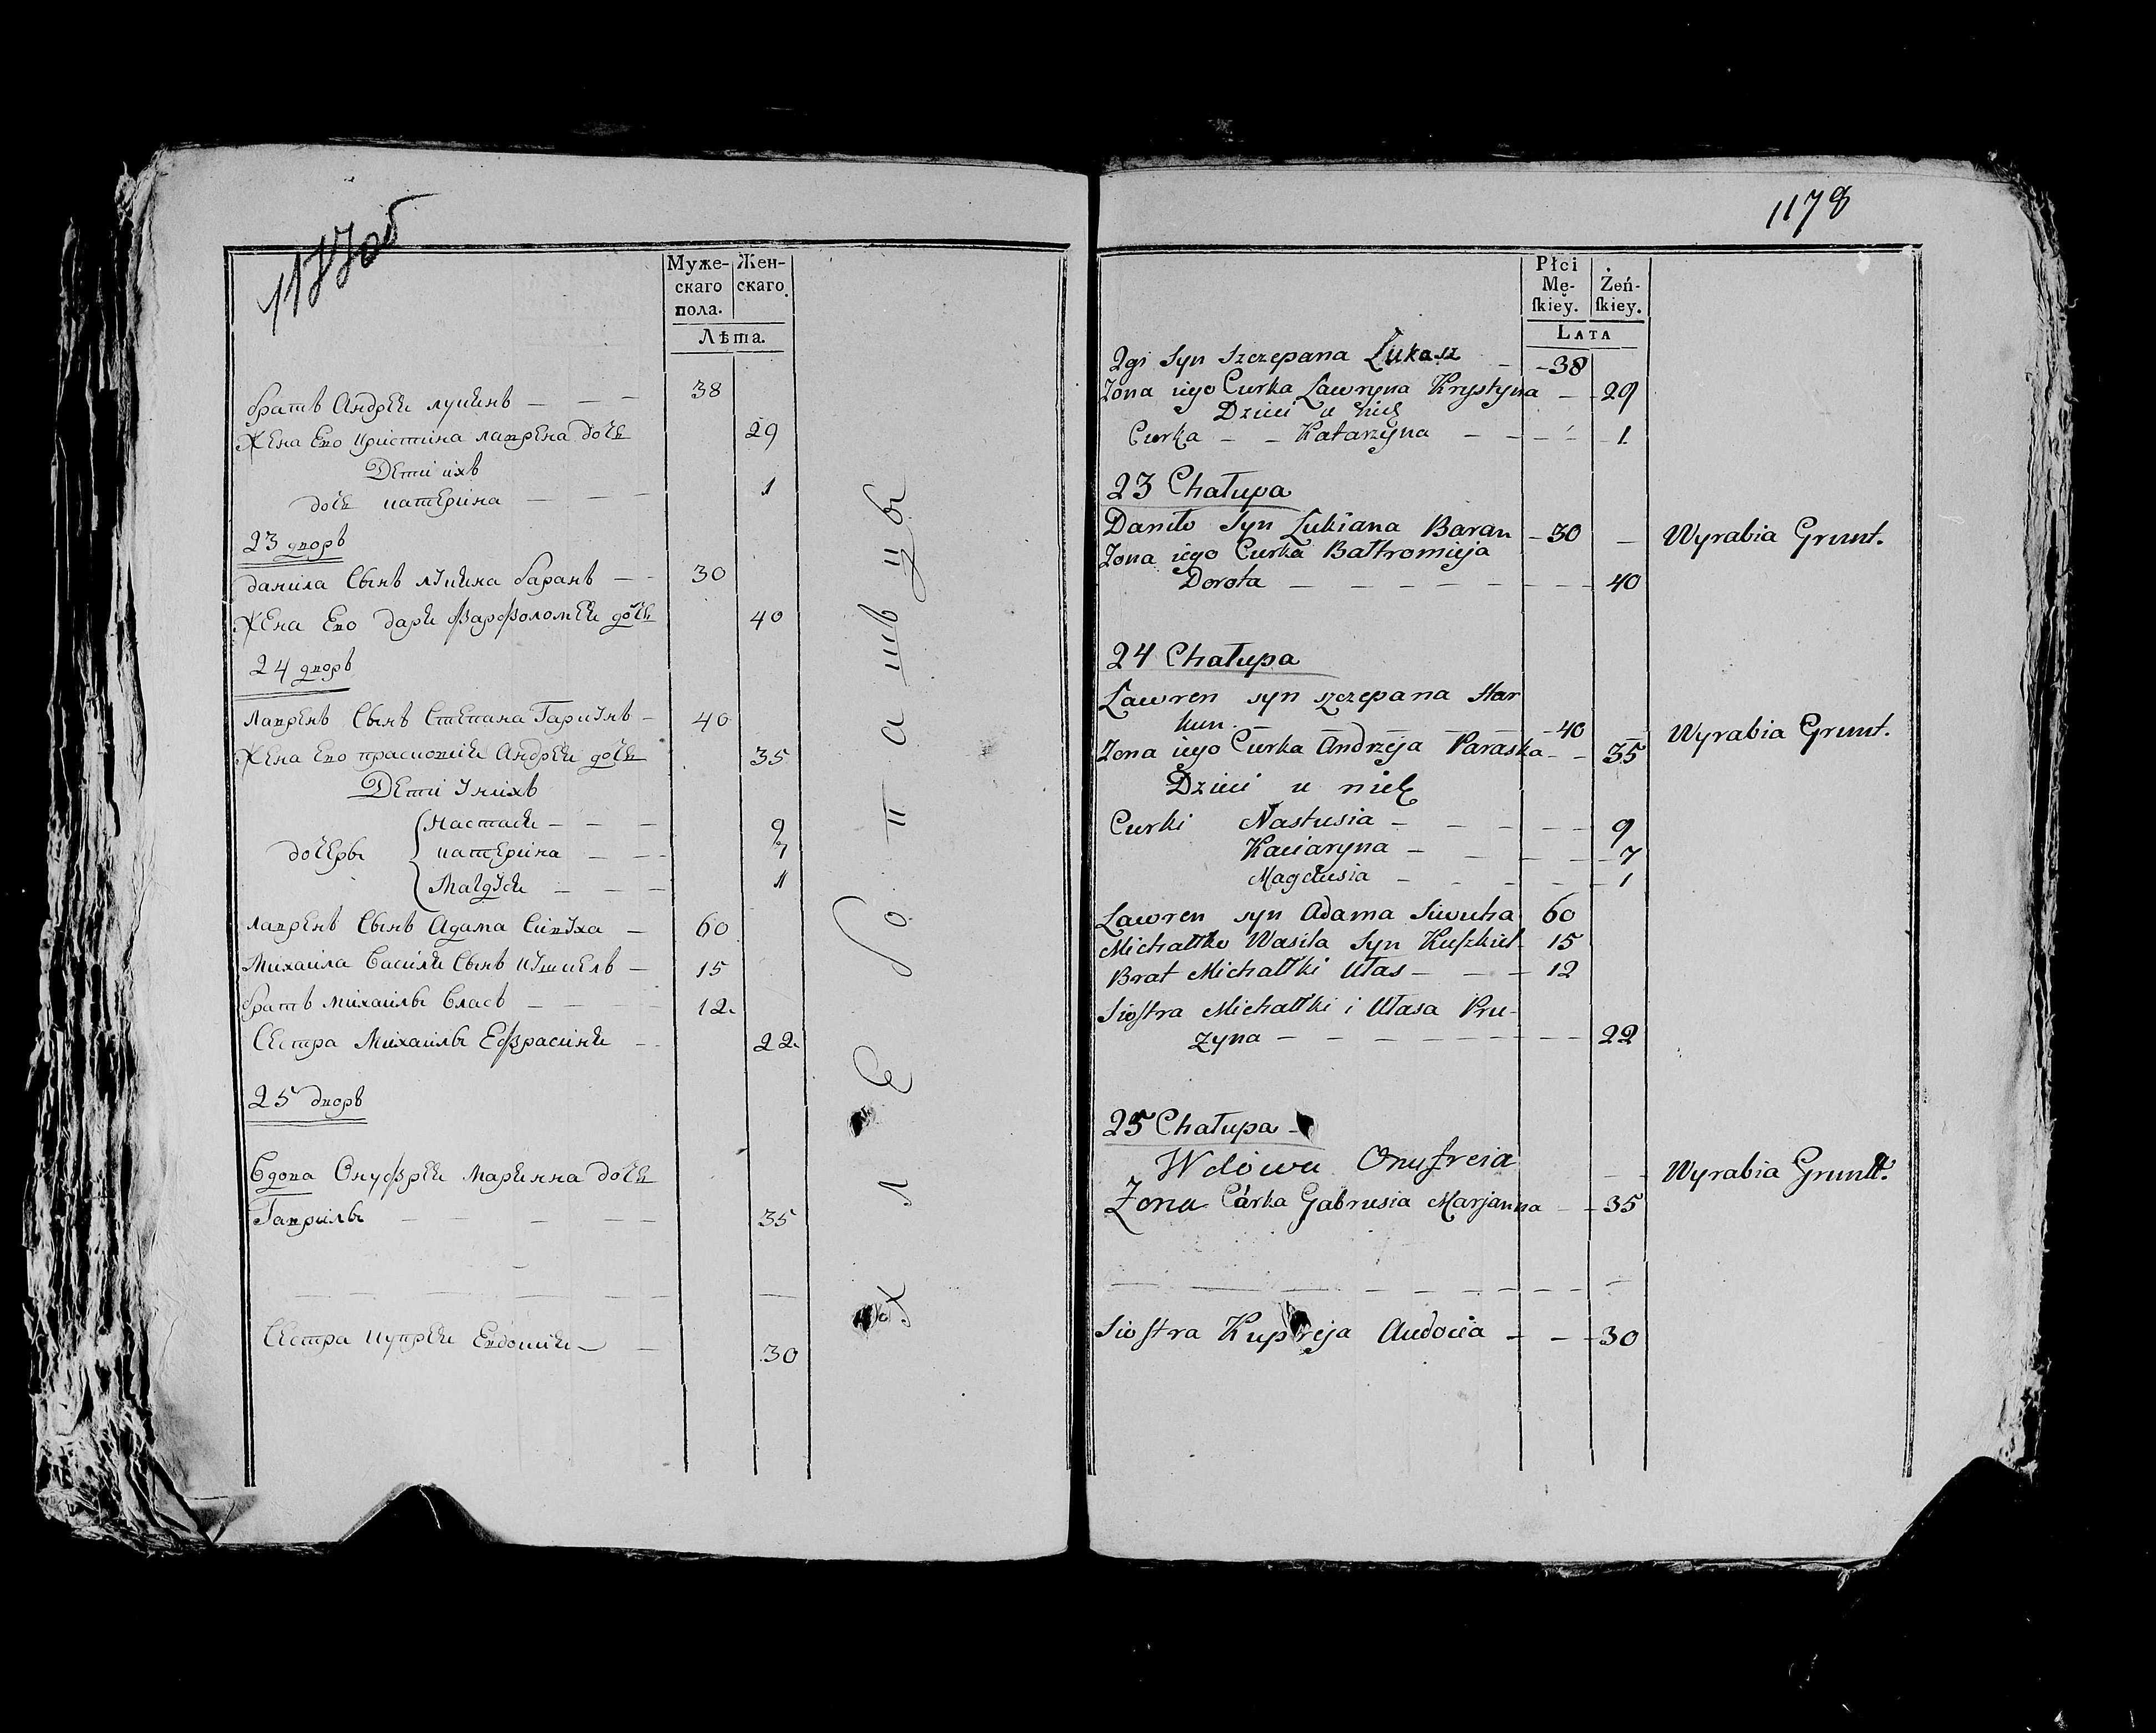 1177об
Муже-
скаго
пола.
Жен-
скаго.
Лѣта.
братъ Андрей лукинъ — — — 38
жена Ево кристина лаврена дочь 29
Дети ихъ
дочь катерина — — — 1
23 дворъ
данила Сынъ лукина баранъ — — 30
жена Ево даря фарфоломея дочь 40
24 дворъ
Лавренъ Сынъ Степана Гаркунъ — 40
жена Ево прасковия Андрея дочь 35
Дети унихъ
дочеры
Настася — — — 9
катерина — — — 7
Магдуся — — — 1
лавренъ Сынъ Адама Сивуха — 60
Михаила Василя Сынъ кушкелъ — 15
братъ михаилы власъ — — — 12.
Сестра Михаилы Ефрасиня — — 22.
25 дворъ
Вдова Онуфрея Марянна дочь
Гаврилы — — — — 35
Сестра купрея Евдокия — — 30
Х л е б о п а ш ъ ц ы
1178
Płci
Mę-
ſkiey.
Żeń-
ſkiey.
LATA
2gi Syn Szczepana Łukasz — 38
Żona iego Curka Ławryna Krystyna — 29
Dzieci u nich
Curka — — Katarzyna — — — — 1
23 Chałupa
Daniło Syn Łukiana Baran — 30 — Wyrabia Grunt.
Żona iego Curka Bałtromieja
Dorota — — — — — — 40
24 Chałupa
Ławren syn szczepana Har
kun. — — — — 40 — Wyrabia Grunt.
Żona iego Curka Andrzeja Paraska — — 35
Dzieci u nich
Curki Nastusia — — — — — 9
Kaciaryna — — — — — 7
Magdusia — — — — — 1
Ławren syn Adama Siwucha 60
Michałtko Wasila Syn Kuſzkiel 15
Brat Michałtki Ułas — — — 12
Sioſtra Michałtki i Ułasa Pru-
zyna — — — — — — — — 22
25 Chałupa —
Wdowa Onufreia — — Wyrabia Grunt.
Żona Córka Gabrusia Marjanna — — 35
Sioſtra Kupreja Audocia — — — 30